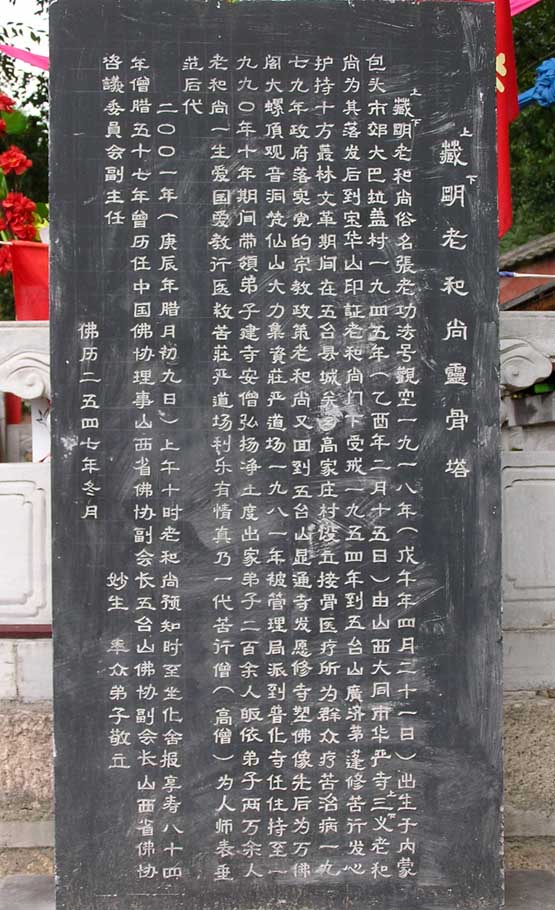 上藏下明老和尚靈骨塔
上藏下明老和尚俗名張老功法号觀空一九一八年(戊午年四月二十一日)出生于内蒙
包头市郊大巴拉盖村一九四五年(乙酉年二月十五日)由山西大同市华严寺上三下义老和
尚为其落发后到宝华山印証老和尚门下受戒一九五四年到五台山廣济茅蓬修苦行发心
护持十方叢林文革期间在五台县城关高家庄村设立接骨医疗所为群众疗苦治病一九
七九年政府落实党的宗教政策老和尚又回到五台山显通寺发愿修寺塑佛像先后为万佛
阁大螺頂观音洞梵仙山大力集資莊严道场一九八一年被管理局派到普化寺任住持至一
九九〇年十年期间带領弟子建寺安僧弘扬净土度出家弟子二百余人皈依弟子两万余人
老和尚一生爱国爱教行医救苦莊严道场利乐有情真乃一代苦行僧(高僧)为人师表垂
范后代
二〇〇一年(庚辰年腊月初九日)上午十时老和尚预知时至坐化舍报享寿八十四
年僧腊五十七年曾历任中国佛协理事山西省佛协副会长五台山佛协副会长山西省佛协
咨議委員会副主任
妙生 率众弟子敬立
佛历二五四七年冬月